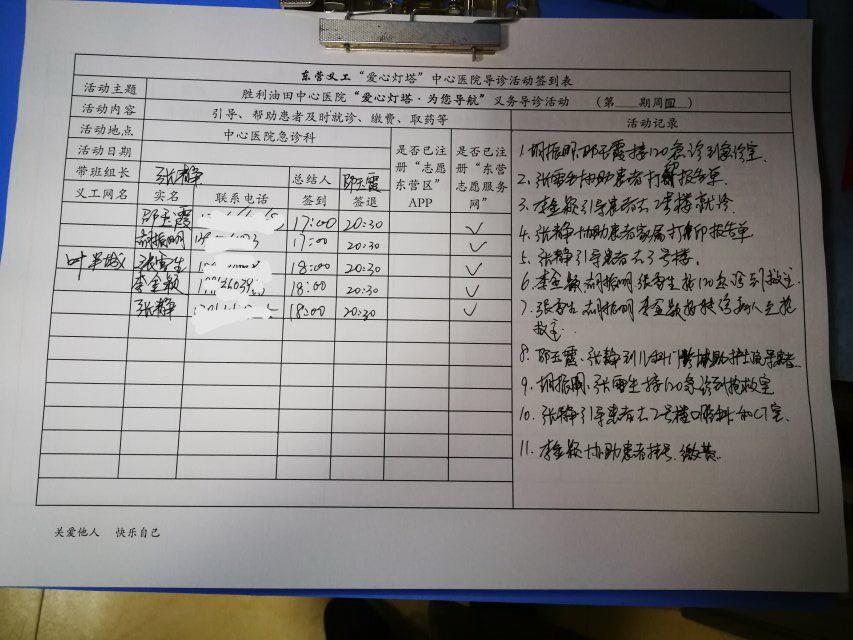 东营义工“爱心灯塔”中心医院导诊活动签到表
活动主题 胜利油田中心医院“爱心灯塔·为您导航”义务导诊活动 （第 期周四）
活动内容 引导、帮助患者及时就诊、缴费、取药等
活动地点 中心医院急诊科
活动日期
带班组长 张静 总结人 邵玉霞
义工网名 实名 联系电话 签到 签退 是否已注册“志愿东营区”APP 是否已注册“东营志愿服务网”
邵玉霞 17:00 20:30 ✓
胡振刚 17:00 20:30 ✓
张雪生 18:00 20:30 ✓
李金颖 18:00 20:30 ✓
张静 18:00 20:30 ✓
活动记录
1. 胡振刚、邵玉霞接120急诊到急诊室.
2. 张雪生协助患者打印报告单.
3. 李金颖引导患者去2号楼就诊.
4. 张静协助患者家属打印报告单.
5. 张静引导患者去3号楼.
6. 李金颖 胡振刚 张雪生接120急诊到救室.
7. 张雪生 胡振刚 李金颖接转诊病人去抢救室.
8. 邵玉霞、张静到儿科门诊协助护士疏导患者
9. 胡振刚、张雪生接120急诊到抢救室
10. 张静引导患者去2号楼口腔科和CT室.
11. 李金颖协助患者挂号.缴费.
关爱他人 快乐自己